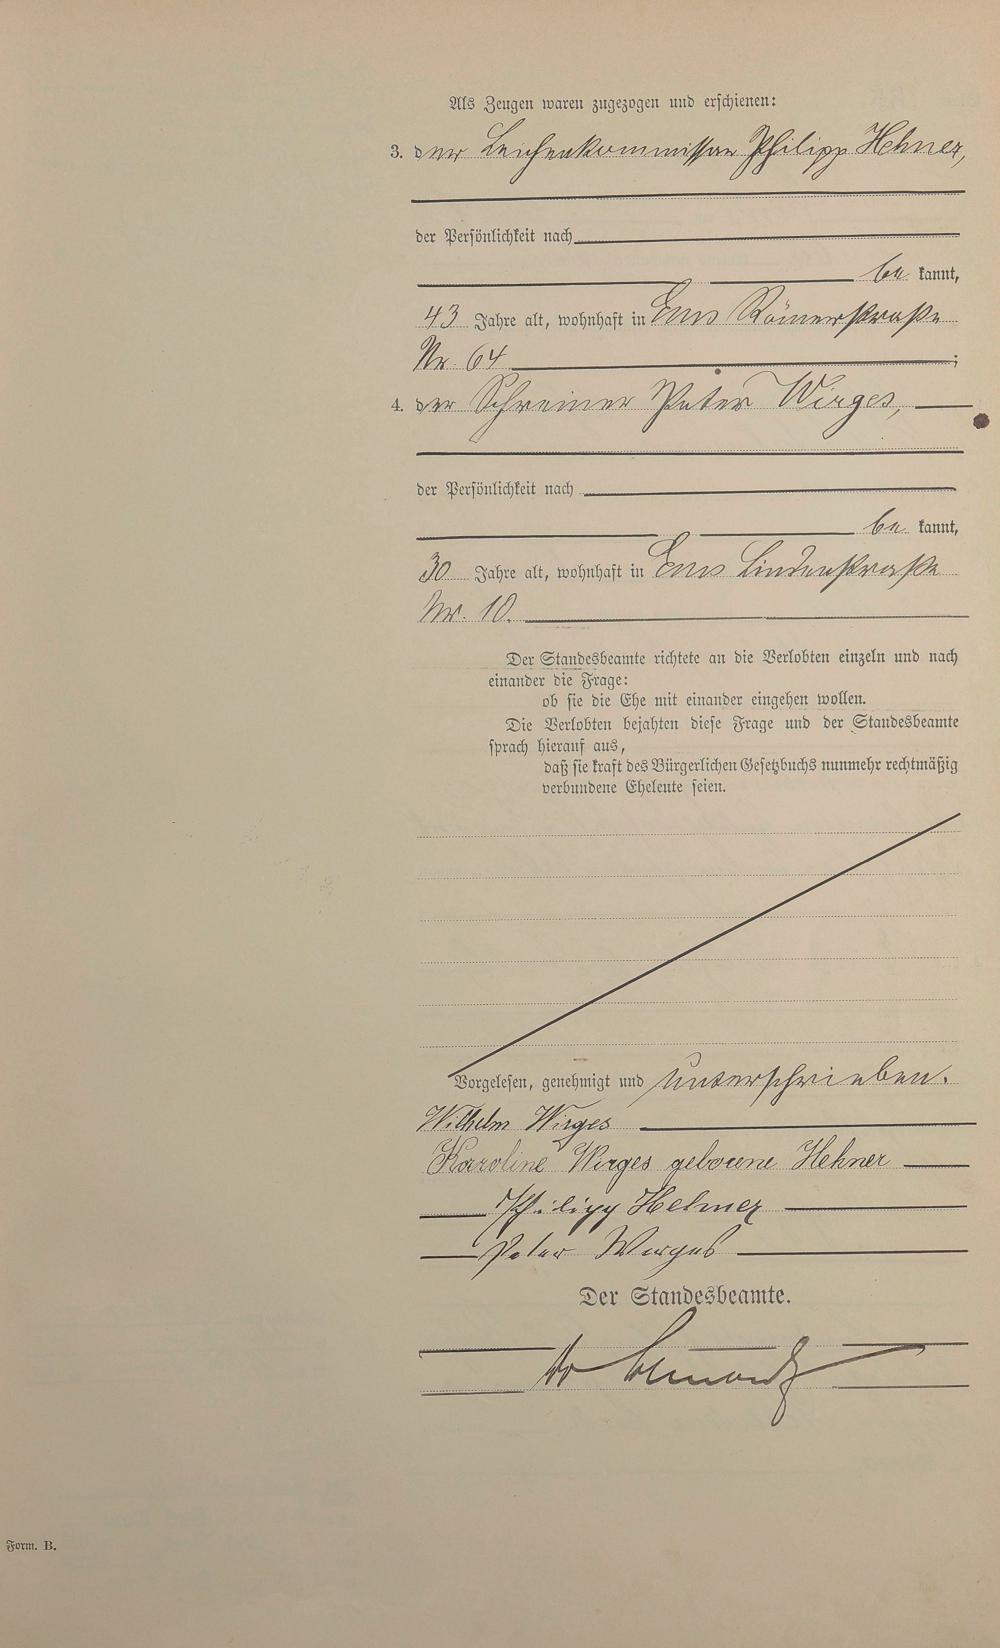 Als Zeugen waren zugezogen und erschienen:
3. der Leichenkommissar Philipp Hehner,
der Persönlichkeit nach
be kannt,
43 Jahre alt, wohnhaft in Ems Römerstraße
Nr. 64 ;
4. der Schreiner Peter Wirges,
der Persönlichkeit nach
be kannt,
30 Jahre alt, wohnhaft in Ems Lindenstraße
Nr. 10.
Der Standesbeamte richtete an die Verlobten einzeln und nach
einander die Frage:
ob sie die Ehe mit einander eingehen wollen.
Die Verlobten bejahten diese Frage und der Standesbeamte
sprach hierauf aus,
daß sie kraft des Bürgerlichen Gesetzbuchs nunmehr rechtmäßig
verbundene Eheleute seien.
Vorgelesen, genehmigt und unterschrieben.
Wilhelm Wirges
Karoline Wirges geborene Hehner
Philipp Hehner
Peter Wirges
Der Standesbeamte.
Form. B.